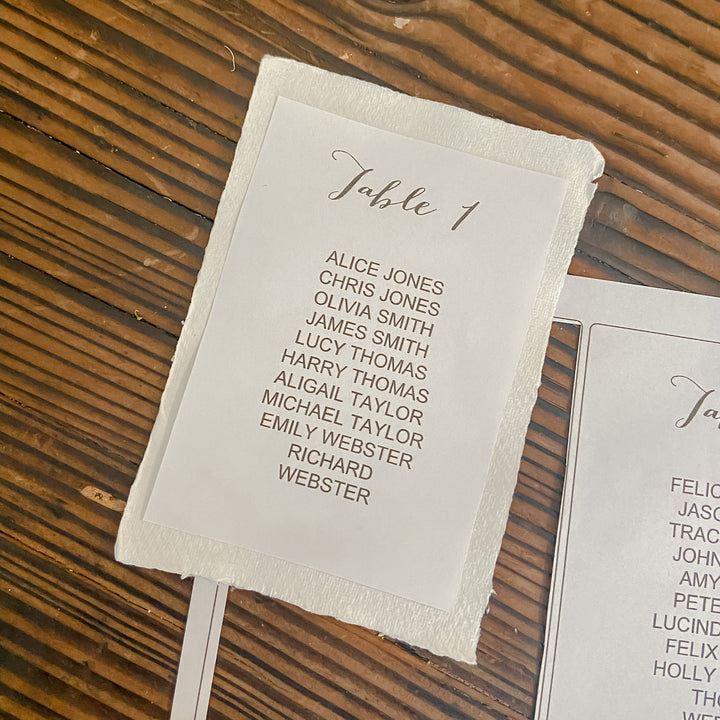 Table 1
ALICE JONES
CHRIS JONES
OLIVIA SMITH
JAMES SMITH
LUCY THOMAS
HARRY THOMAS
ALIGAIL TAYLOR
MICHAEL TAYLOR
EMILY WEBSTER
RICHARD
WEBSTER
Ta
FELIC
JASO
TRAC
JOHN
AMY
PETE
LUCIND
FELIX
HOLLY
THO
WE